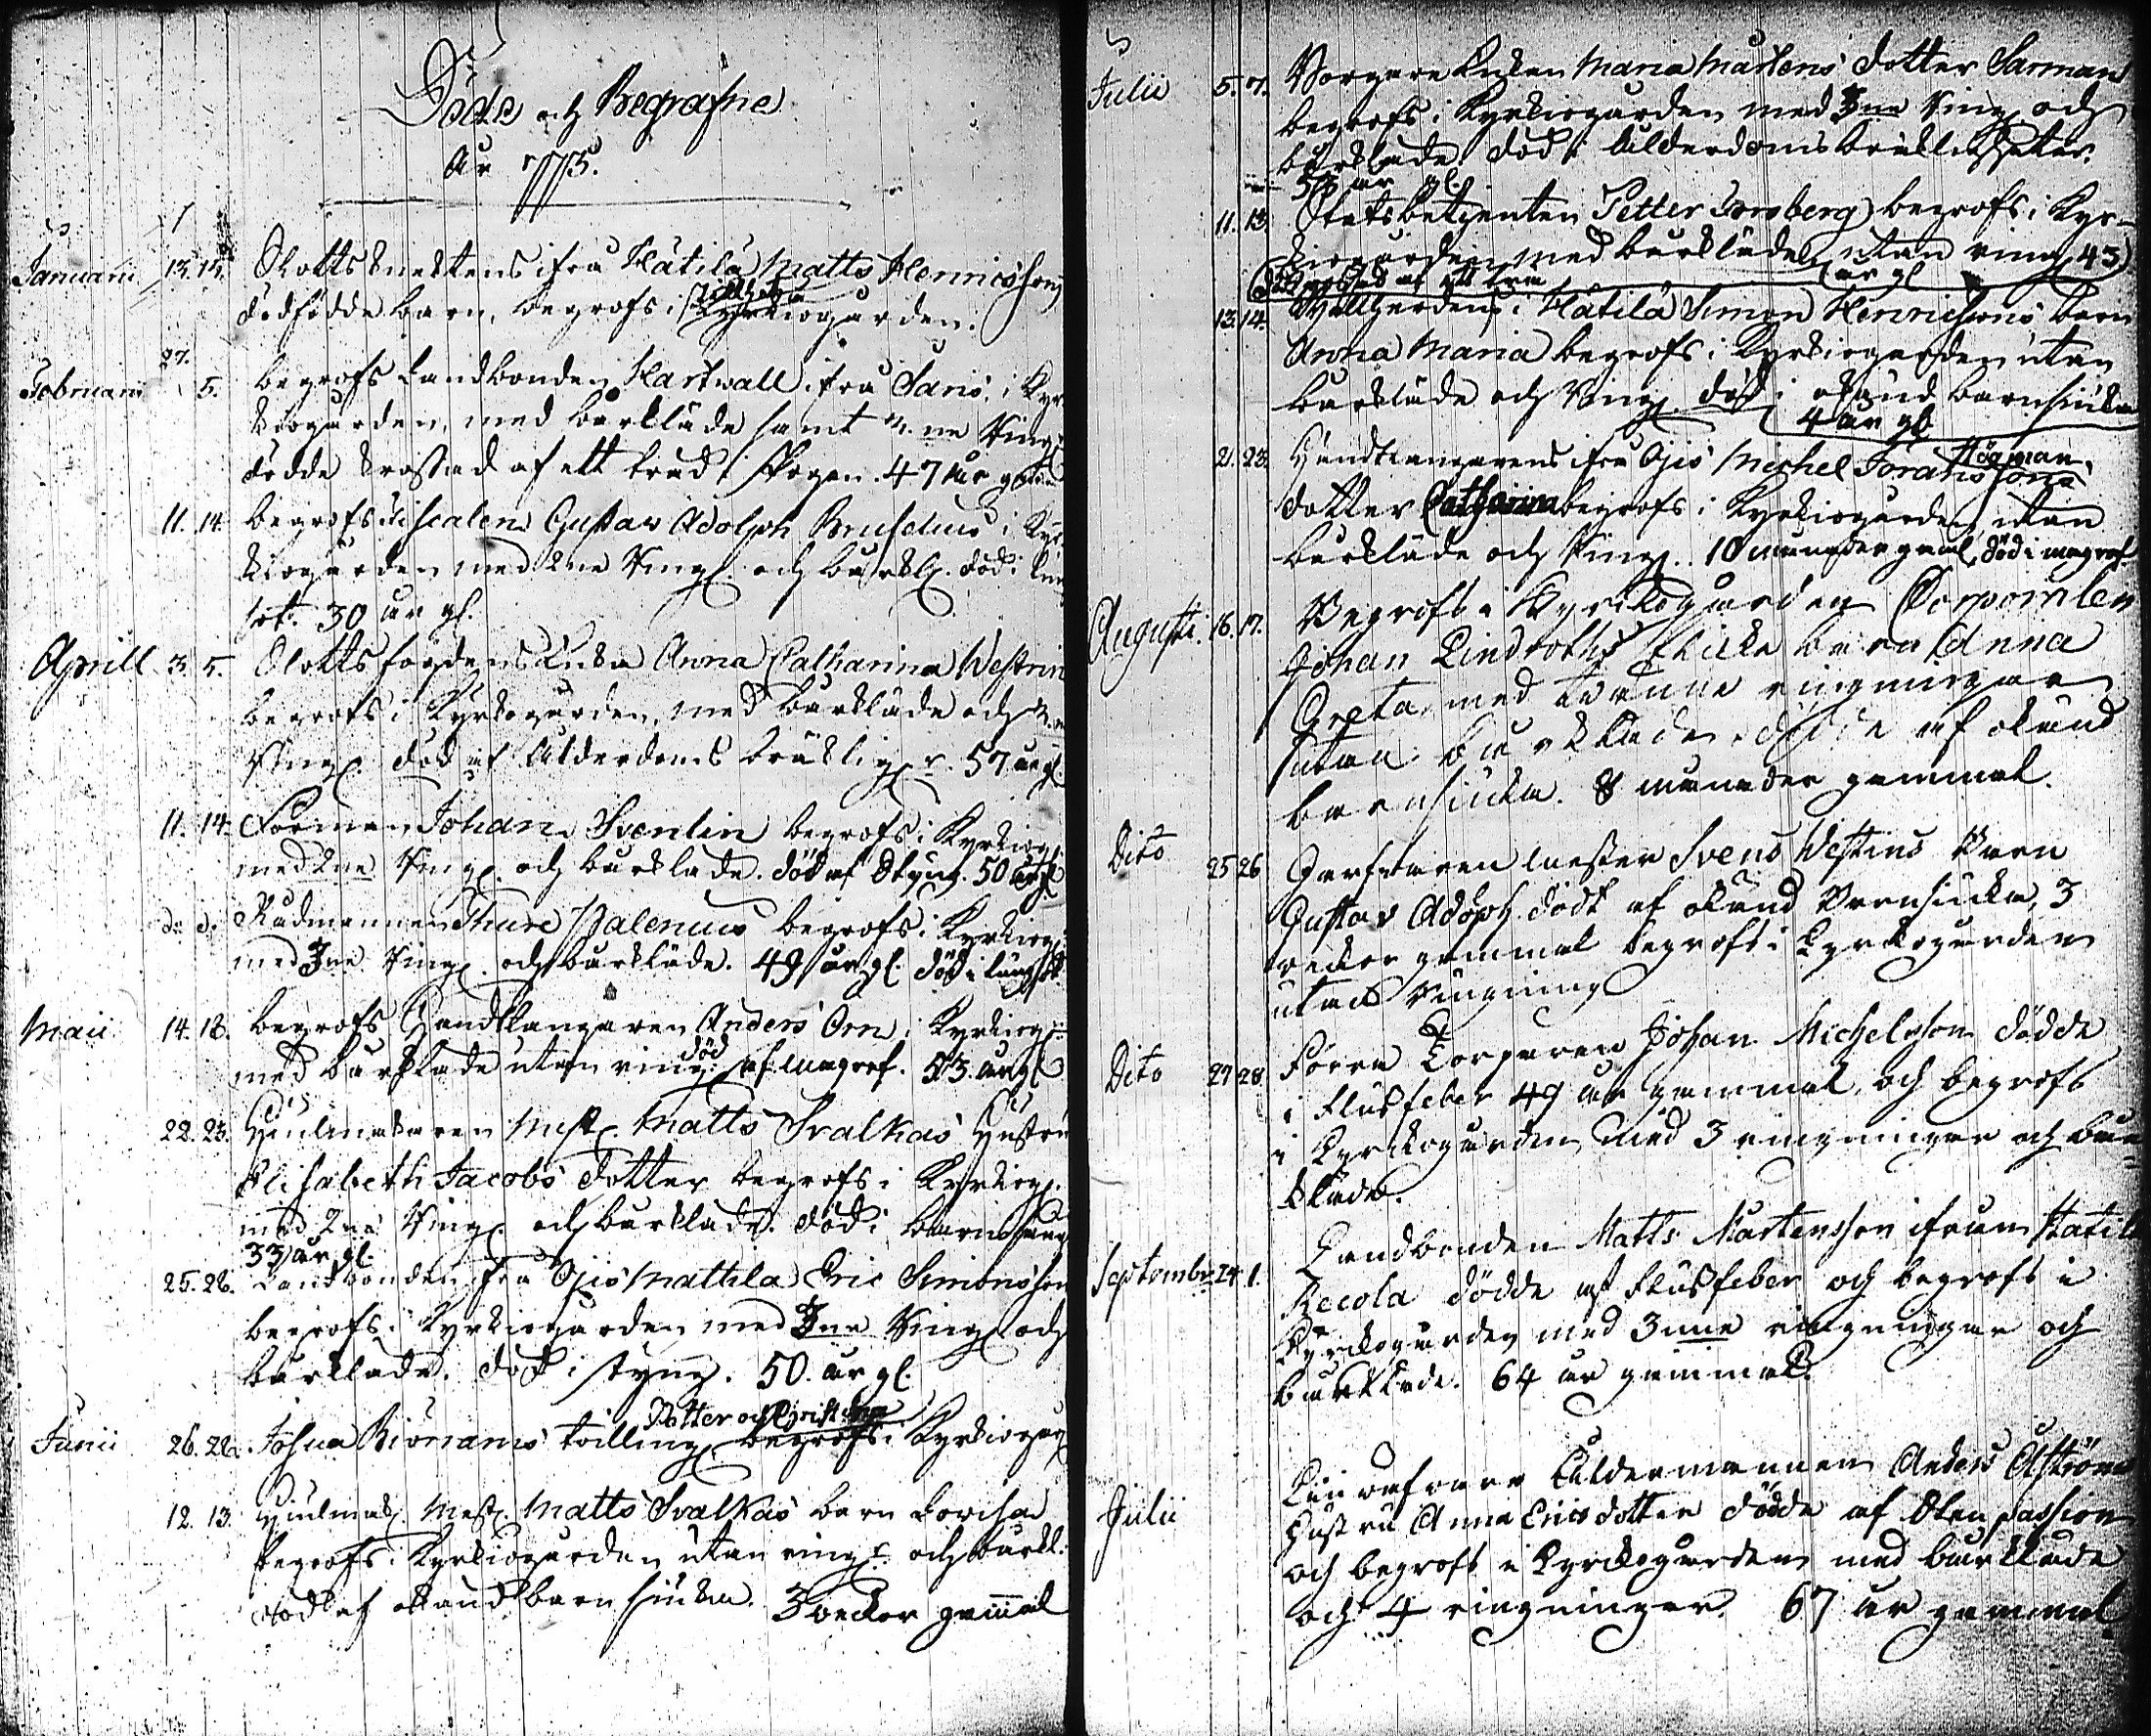 Döde och Begrafne
År 1775.
Januarii 13. 15. Slotts Knecktens ifrån Hätilä Matts Henricssons
dödfödde barn, begrofs i Kyrkiogården.
27.
Februarii 5. begrofs Landbonden Hartwall ifrån Saris i Kyr-
kiogården, med bårkläde samt 3.ne Ring:
dödde krossad af ett träd i skogen. 47 år gam
11. 14. begrofs Fiscalen Gustav Adolph Bruselius i Kyr
kiogården med 2ne Ring. och bårkl. död i lung
sot. 30 år gl.
Aprill 3. 5. Slotts Enka Anna Catharina Westrin
begrofs i Kyrkiogården, med bårkläde och
Ring. död af ålderdoms bräklig. 57 år gl.
11. 14. Johan Svenlin begrofs i Kyrkiog:
med 2ne Ring. och bårkläde. död af Styng. 50 år gl
d: d: Rådmannen Thure Palenius begrofs i Kyrkiog:
med 3ne Ring. och bårkläde. 49 år gl. död i lungsot
Maii 14. 18. begrofs Handtlangaren Anders Orn i Kyrkiog:
med bårkläde utan ring: död af magref. 53. år gl
22. 23. Hiulmakaren Mest. Matts Svalkas Hustru
Elisabeth Jacobs dotter begrofs i Kyrkiog.
med 2ne Ring. och bårkläde. död i barnsäng
33 år gl.
25. 28. Landbonden ifrån Ojis Mattila Eric Simonsson
begrofs i Kyrkiogården med 3ne Ring. och
bårkläde. död i styng. 50. år gl.
Petter och Christina
Junii 26. 28. Josua Biörmans tvilling begrofs i Kyrkiogår
12. 13. Hiulmak. Mest. Matts Svalkas barn Lovisa
begrofs i Kyrkiogården utan ring. och bårkl:
död af okänd barnsiuka. 3 veckor gammal
Julii 5. 7. Borgare Enkan Maria Mårtens dotter Sarman
begrofs i Kyrkiogården med 3ne Ring. och
bårkläde. död i ålderdoms bräklighet.
år gl.
11. 13. Petter Forsberg begrofs i Kyr-
kiogården med bårkläde utan ring. 43
år gl
13. 14. i Hätilä Simon Henricssons barn
Anna Maria begrofs i Kyrkiogården utan
bårkläde och Ring. död i okänd barnsiuka
4 år gl
21. 23. Handtlangarens ifrån Ojis Michel Göranssons Högman
dotter Catharina begrofs i Kyrkiogården utan
bårkläde och Ring. 10 månader gamal, död i magref.
Augusti. 16. 17. Begrofs i Kyrkiogården Corporalen
Johan Lindroths flicka barn Anna
Greta, med tvänne ringningar
utan bårkläde. dödde af okänd
barnsiuka. 8 månader gammal.
Dito 25 26 Garfvaren mäster Svens Westins Barn
Gustav Adolph dödt af okänd Barnsiuka, 3
veckor gammal begrofs i Kyrkogården
utan Ringning
Dito 27 28 Förra Torparen Johan Michelsson dödde
i Flussfeber 49 år gammal, och begrofs
i Kyrkogården med 3 ringningar och bår-
kläde.
September 24. 1. Landbonden Matts Mårtensson ifrån Hätilä
Recola dödde af Flussfeber och begrofs i
Kyrkogården med 3nne ringningar och
bårkläde. 64 år gammal.
Julii Ålderman​nen Anders Åströms
Hustru Anna Ericsdotter dödde af Stenpassion
och begrofs i Kyrkogården med bårkläde
och 4 ringningar. 67 år gammal.